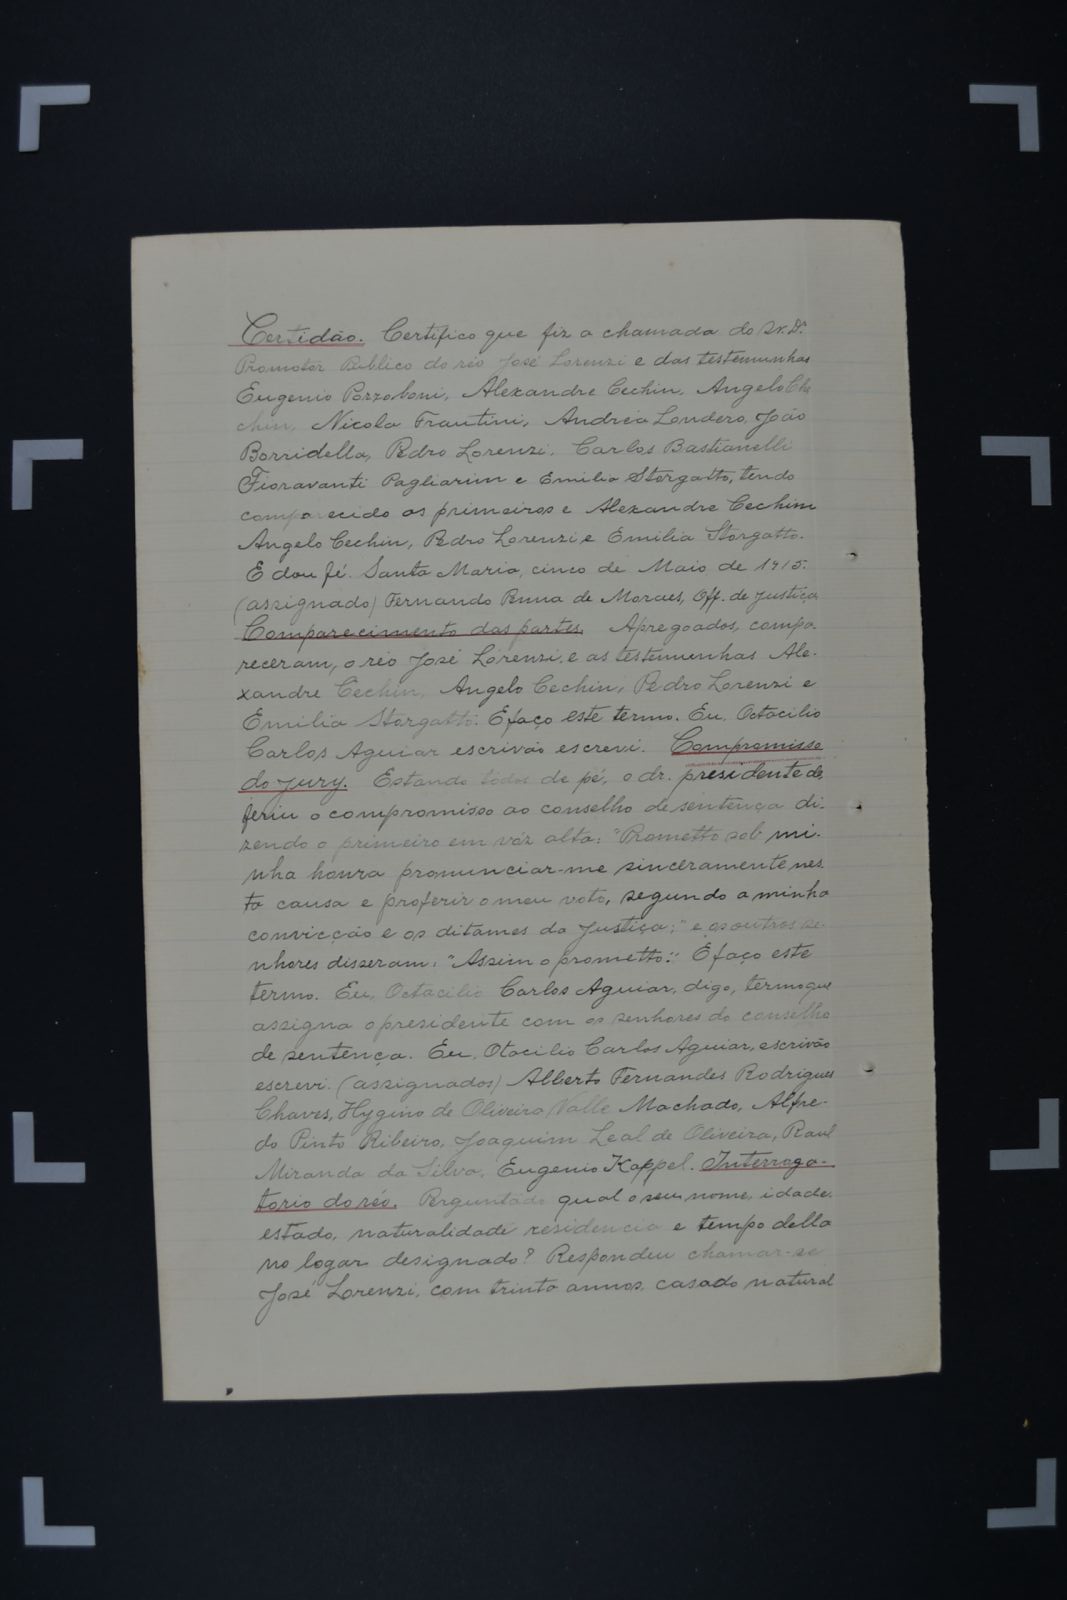 Certidão. Certifico que fiz a chamada do Sr. Dr.
Promotor Publico do réo José Lorenzi e das testemunhas
Eugenio Pozzoboni, Alexandre Cechin, Angelo Che
chin, Nicola Frantini, Andréa Londero, João
Borridella, Pedro Lorenzi, Carlos Bastianelli
Fioravanti Pagliarim e Emilia Storgatto, tendo
comparecido os primeiros e Alexandre Cechim
Angelo Cechin, Pedro Lorenzi e Emilia Storgatto.
E dou fé. Santa Maria, cinco de Maio de 1915.
(assignado) Fernando de Moraes, Off. de Justiça
Comparecimento das partes. Apregoados, compa
receram, o réo José Lorenzi, e as testemunhas Ale-
xandre Cechin, Angelo Cechin, Pedro Lorenzi e
Emilia Storgatto. E faço este termo. Eu, Octacilio
Carlos Aguiar escrivão escrevi. Compromisso
do jury. Estando todos de pé, o dr. presidente de
feriu o compromisso ao conselho de sentença di-
zendo o primeiro em vóz alta: "Prometto sob mi-
nha honra pronunciar-me sinceramente nes
ta causa e proferir o meu voto, segundo a minha
convicção e os ditames da Justiça;" e os outros se-
nhores disseram: "Assim o prometto." E faço este
termo. Eu, Octacilio Carlos Aguiar, digo, termo que
assigna o presidente com os senhores do conselho
de sentença. Eu, Otacilio Carlos Aguiar, escrivão
escrevi. (assignados) Alberto Fernandes Rodrigues
Chaves, Hygino de Oliveira Valle Machado, Alfre-
do Pinto Ribeiro, Joaquim Leal de Oliveira, Raul
Miranda da Silva, Eugenio Kappel. Interroga-
torio do réo. Perguntado qual o seu nome, idade,
estado, naturalidade residencia e tempo della
no logar designado? Respondeu chamar-se
José Lorenzi, com trinta annos, casado natural